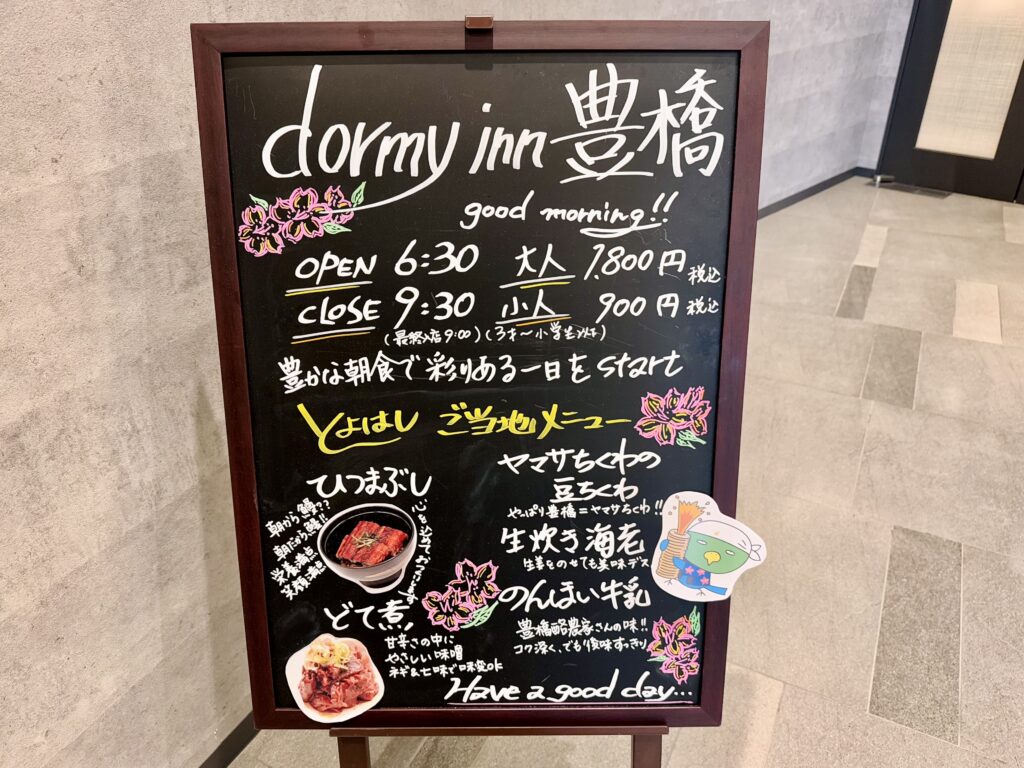 dormy inn 豊橋
good morning!!
OPEN 6:30 大人 1,800円 税込
CLOSE 9:30 小人 900円 税込
(最終入店9:00) (3才〜小学生以下)
豊かな朝食で彩りある一日をstart
とよはし ご当地メニュー
ひつまぶし
朝から鰻??
朝だから鰻!!
栄養満点
笑顔満点
心を込めて
どて煮
甘辛さの中に
やさしい味噌
ネギ&七味で味変OK
ヤマサちくわの
豆ちくわ
やっぱり豊橋=ヤマサちくわ!!
生炊き海老
生姜をのせても美味デス
のんほい牛乳
豊橋酪農家さんの味!!
コク深く、でも後味すっきり
Have a good day...